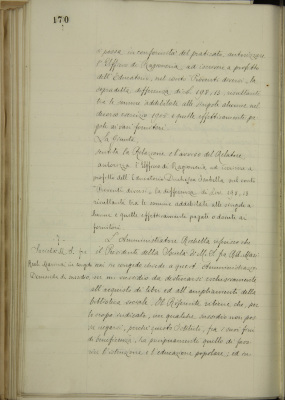 170
e possa, in conformità del praticato, autorizzare
l'Ufficio di Ragioneria, ad incamerare a profitto
dell'Educatorio, nel conto Proventi diversi, la
sopradetta differenza di L. 198,15, risultante
tra le somme addebitate alle singole alunne nel
decorso esercizio 1905 e quelle effettivamente pa-
gate ai vari fornitori.
La Giunta
sentita la Relazione e l'avviso del Relatore,
autorizza l'Ufficio di Ragioneria ad incamerare a
profitto dell'Educatorio Duchessa Isabella, nel conto
Proventi diversi, la differenza di Lire 198,15
risultante tra le somme addebitate alle singole a-
lunne e quelle effettivamente pagate o dovute ai
fornitori.
7.
L'Amministratore Rochella riferisce che
il Presidente della Società
in seguito
vien rivolgendo a quest'Amministrazione
Domanda di sussidio
un sussidio da destinarsi esclusivamente
all'acquisto di libri ed all'ampliamento della
biblioteca sociale. Il Referente ritiene che, per
lo scopo indicato, un qualche sussidio non pos-
sa negarsi, poichè questo Istituto, fra i suoi fini
di beneficenza, ha propriamente quello di favo-
rire l'istruzione e l'educazione popolare; ed es-